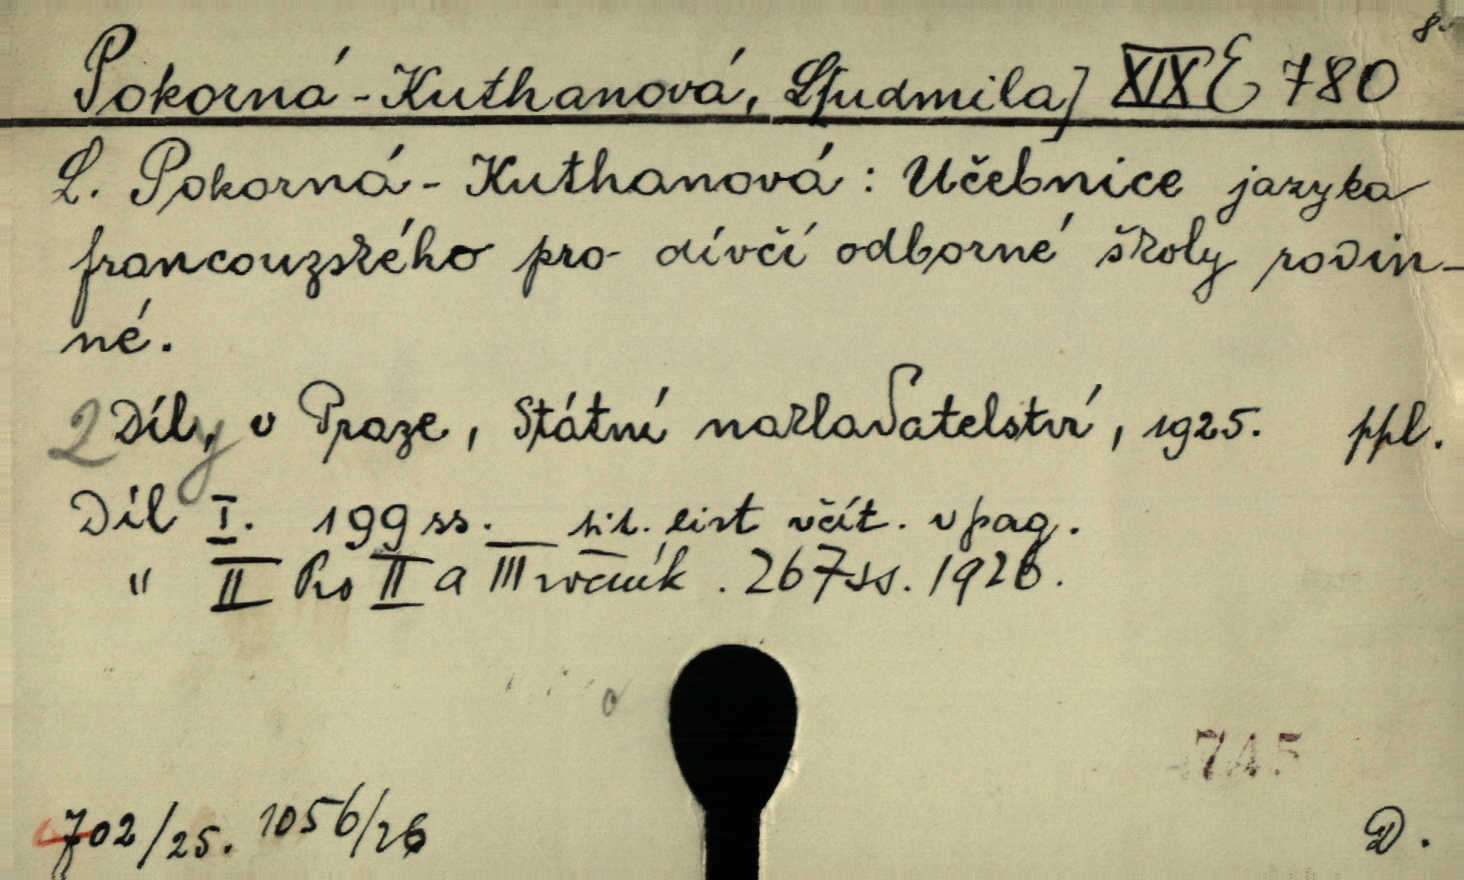 8°
Pokorná-Kuthanová, L[udmila] XIX E 780
L. Pokorná-Kuthanová: Učebnice jazyka
francouzského pro dívčí odborné školy rodin-
né.
2 Díly, v Praze, Státní nakladatelství, 1925. ppl.
Díl I. 199 ss. tit. list včít. v pag.
" II Pro II a III ročník. 267 ss. 1926.
745
702/25. 1056/26
D.